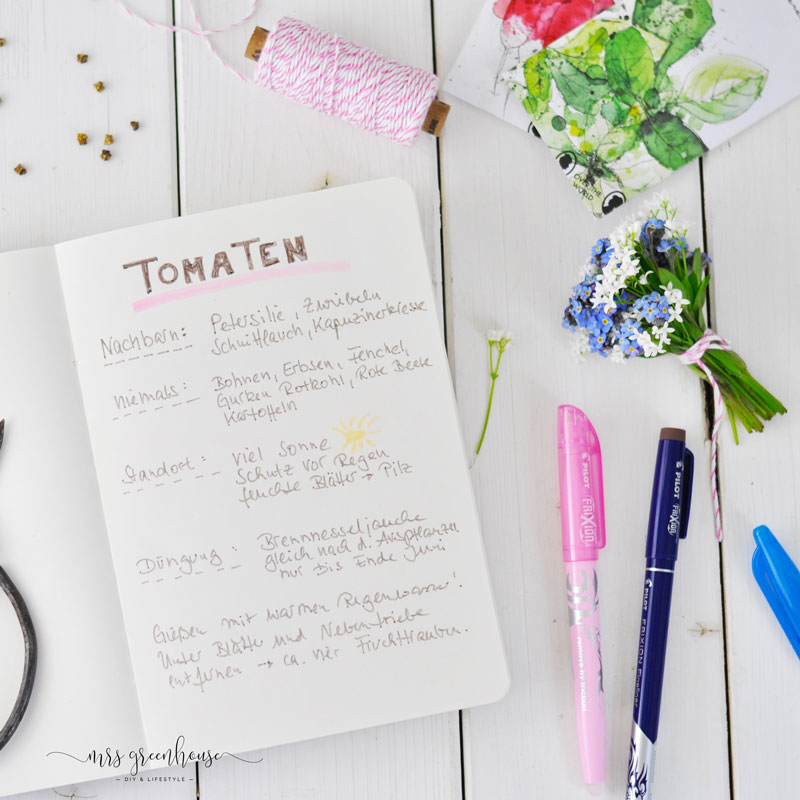 TOMATEN
Nachbarn: Petersilie, Zwiebeln
Schnittlauch, Kapuzinerkresse
niemals: Bohnen, Erbsen, Fenchel,
Gurken Rotkohl, Rote Beete
Kartoffeln
Standort: viel Sonne
Schutz vor Regen
feuchte Blätter → Pilz
Düngung: Brennnesseljauche
gleich nach d. Auspflanzen
nur bis Ende Juni
Gießen mit warmen Regenwasser!
Unter Blätter und Nebentriebe
entfernen → ca. vier Fruchttrauben.
OVER THE
WORLD
PILOT FRIXION
remove by friction
PILOT FRIXION
PILOT FRIXION Fineliner
mrs greenhouse
– DIY & LIFESTYLE –